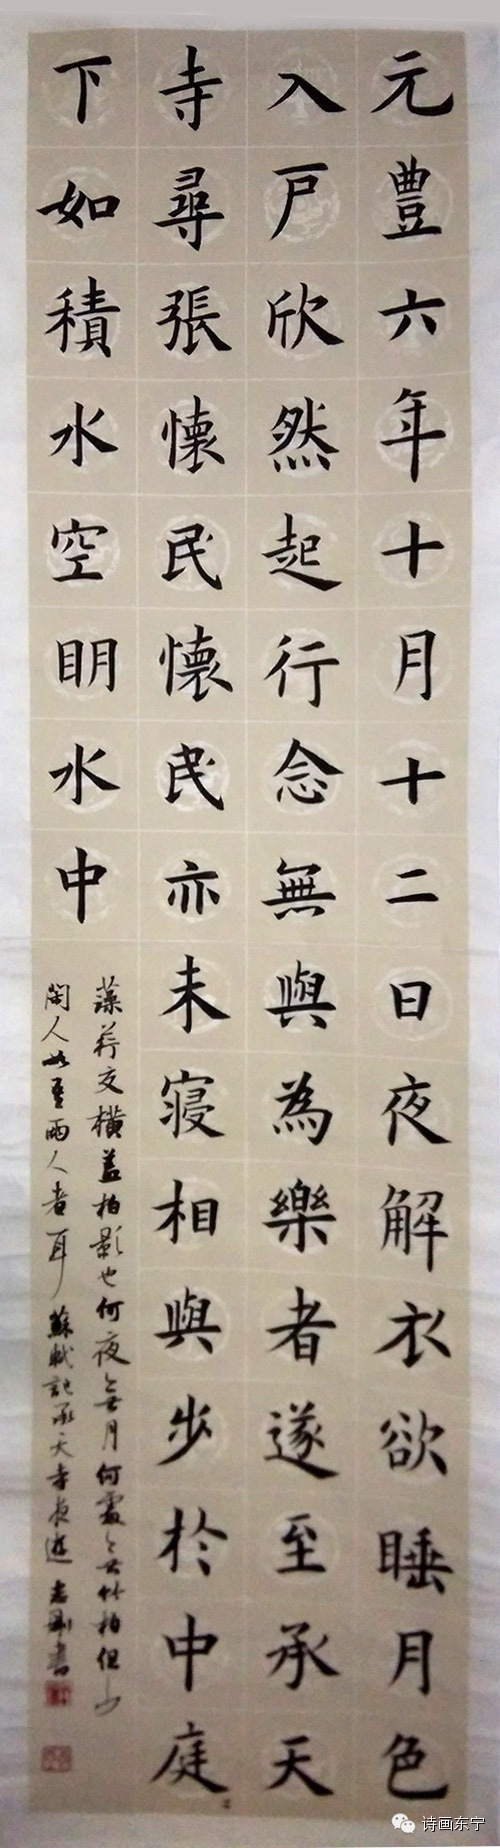 元豊六年十月十二日夜解衣欲睡月色
入戶欣然起行念無與為樂者遂至承天
寺尋張懐民懐民亦未寢相與步於中庭
下如積水空明水中
藻荇交橫盖柏影也何夜無月何處無竹柏但少
閑人如吾兩人者耳 蘇軾記承天寺夜遊 書
诗画东宁